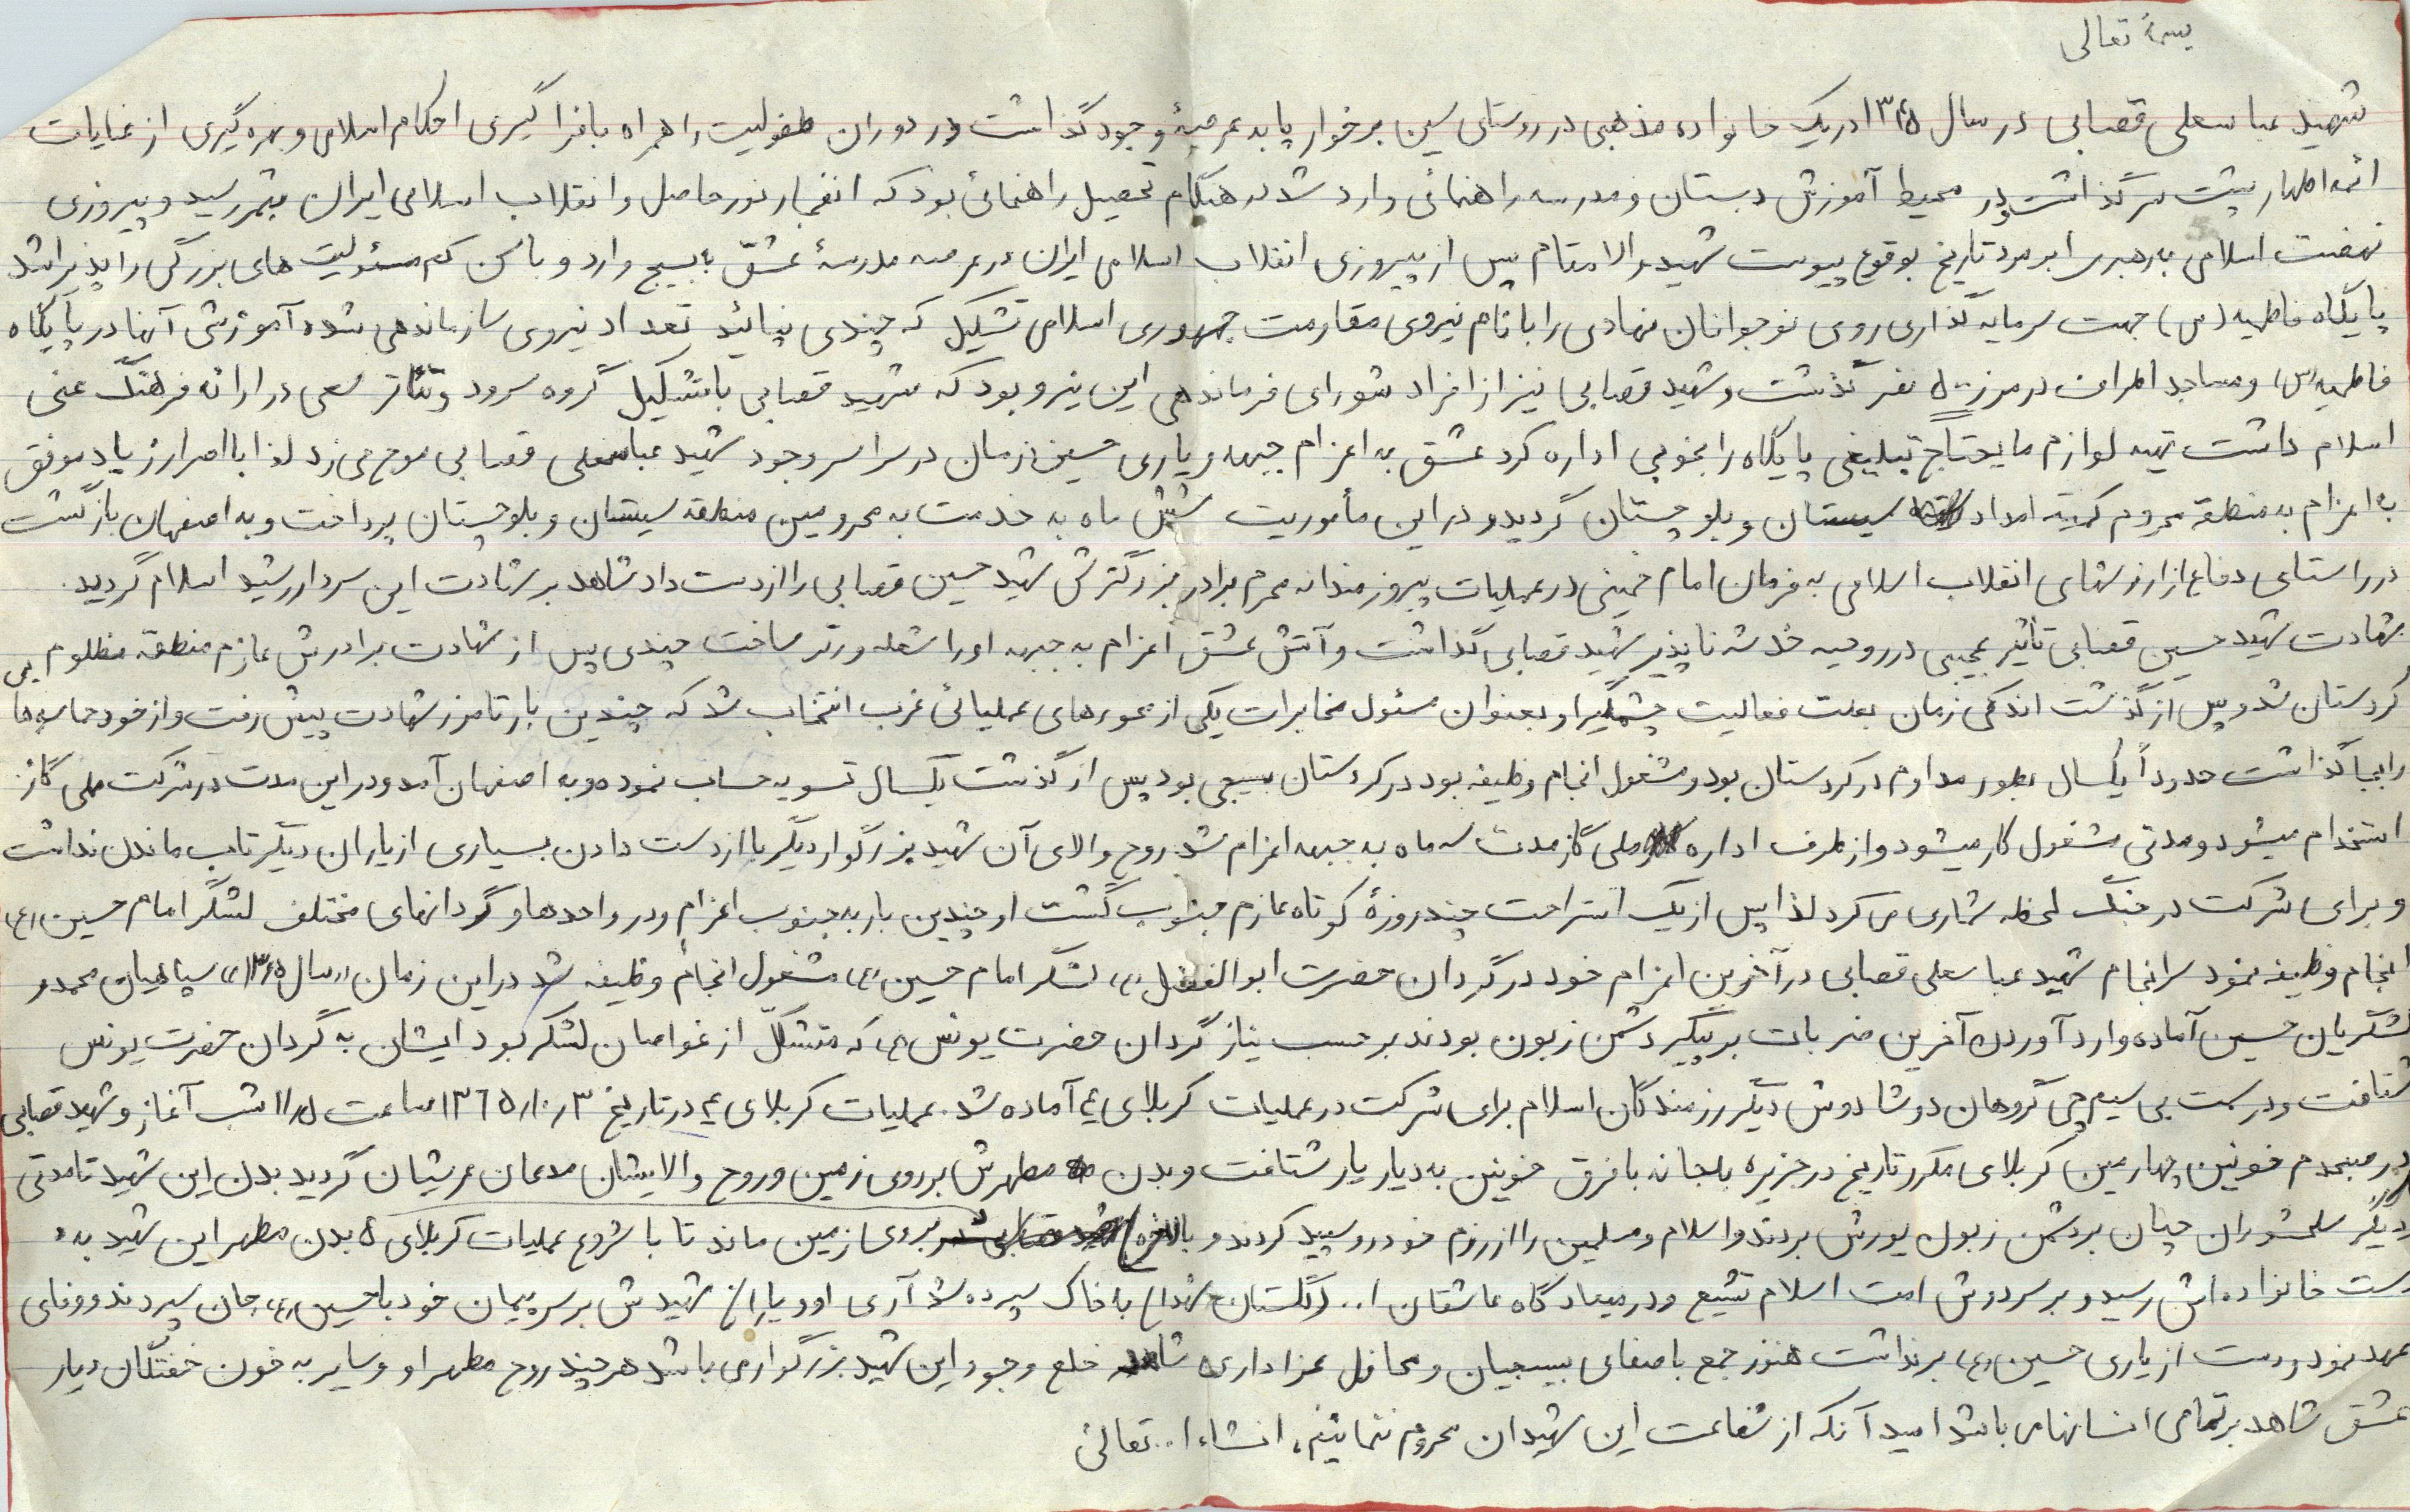 بسمه تعالی
شهید عباسعلی قصابی در سال ۱۳۴۵ در یک خانواده مذهبی در روستای سین برخوار پا به عرصهٔ وجود گذاشت و در دوران طفولیت را همراه با فراگیری احکام اسلامی و بهره گیری از عنایات
ائمه اطهار پشت سر گذاشت و در محیط آموزش دبستان و مدرسه راهنمائی وارد شد در هنگام تحصیل راهنمائی بود که انفجار نور حاصل و انقلاب اسلامی ایران بثمر رسید و پیروزی
نهضت اسلامی به رهبری ابرمرد تاریخ بوقوع پیوست شهید والامقام پس از پیروزی انقلاب اسلامی ایران در عرصه مدرسهٔ عشق بسیج وارد و با سن کم مسئولیت های بزرگی را پذیرا شد
پایگاه فاطمیه (س) جهت سرمایه گذاری روی نوجوانان نهادی را با نام نیروی مقاومت جمهوری اسلامی تشکیل که چندی نپائید تعداد نیروی سازماندهی شده آموزشی آنها در پایگاه
فاطمیه (س) و مساجد اطراف در مرز نفر گذشت و شهید قصابی نیز از افراد شورای فرماندهی این نیرو بود که شهید قصابی با تشکیل گروه سرود و تئاتر سعی در ارائه فرهنگ غنی
اسلام داشت تهیه لوازم مایحتاج تبلیغی پایگاه را بخوبی اداره کرد عشق به اعزام جبهه و یاری حسین زمان در سراسر وجود شهید عباسعلی قصابی موج می زد لذا با اصرار زیاد موفق
به اعزام به منطقه محروم کمیته امداد سیستان و بلوچستان گردید و در این مأموریت شش ماه به خدمت به محرومین منطقه سیستان و بلوچستان پرداخت و به اصفهان بازگشت
در راستای دفاع از ارزشهای انقلاب اسلامی به فرمان امام خمینی در عملیات پیروزمندانه محرم برادر بزرگترش شهید حسین قصابی را از دست داد شاهد بر شهادت این سردار رشید اسلام گردید.
شهادت شهید حسین قصابی تأثیر عجیبی در روحیه خدشه ناپذیر شهید قصابی گذاشت و آتش عشق اعزام به جبهه او را شعله ورتر ساخت چندی پس از شهادت برادرش عازم منطقه مظلوم
کردستان شد و پس از گذشت اندکی زمان بعلت فعالیت چشمگیر او بعنوان مسئول مخابرات یکی از محورهای عملیاتی غرب انتخاب شد که چندین بار تا مرز شهادت پیش رفت و از خود حماسه ها
را بجا گذاشت حدوداً یکسال بطور مداوم در کردستان بود و مشغول انجام وظیفه بود در کردستان بسیجی بود پس از گذشت یکسال تسویه حساب نموده و به اصفهان آمد و در این مدت در شرکت ملی گاز
استخدام میشود و مدتی مشغول کار میشود و از طرف اداره ملی گاز مدت سه ماه به جبهه اعزام شد روح والای آن شهید بزرگوار دیگر با از دست دادن بسیاری از یاران دیگر تاب ماندن نداشت
و برای شرکت در جنگ لحظه شماری می کرد لذا پس از یک استراحت چند روزهٔ کوتاه عازم جنوب گشت او چندین بار به جنوب اعزام و در واحدها و گردانهای مختلف لشگر امام حسین (ع)
انجام وظیفه نمود سرانجام شهید عباسعلی قصابی در آخرین اعزام خود در گردان حضرت ابوالفضل (ع) لشگر امام حسین (ع) مشغول انجام وظیفه شد در این زمان (سال ۱۳۶۵) سپاهیان محمد و
لشگریان حسین آماده وارد آوردن آخرین ضربات بر پیکر دشمن زبون بودند بر حسب نیاز گردان حضرت یونس (ع) که متشکل از غواصان لشکر بود ایشان به گردان حضرت یونس
شتافت و در سمت بی سیم چی گروهان دوشادوش دیگر رزمندگان اسلام برای شرکت در عملیات کربلای ۴ آماده شد. عملیات کربلای ۴ در تاریخ ۱۳۶۵/۱۰/۳ ساعت شب آغاز و شهید قصابی
در صبحدم خونین چهارمین کربلای مکرر تاریخ در جزیره بلجانه با فرق خونین به دیار یار شتافت و بدن مطهرش بر روی زمین و روح والایشان مدعان عرشیان گردید بدن این شهید تا مدتی
دیگر سلحشوران چنان بر دشمن زبون یورش بردند و اسلام و مسلمین را از رزم خود رو سپید کردند و بروی زمین ماند تا با شروع عملیات کربلای ۵ بدن مطهر این شهید به
دست خانواده اش رسید و بر سر دوش امت اسلام تشییع و در میعادگاه عاشقان ا... (گلستان شهدا) به خاک سپرده شد آری او و یاران شهیدش بر سر پیمان خود با حسین (ع) جان سپردند و وفای
عهد نمود و دست از یاری حسین (ع) برنداشت هنوز جمع با صفای بسیجیان و محافل عزاداری شاهد خلع وجود این شهید بزرگوار می باشد هر چند روح مطهر او و سایر به خون خفتگان دیار
عشق شاهد بر تمامی انسانها می باشد امید آنکه از شفاعت این شهیدان محروم ننمائیم. انشاء ا... تعالی